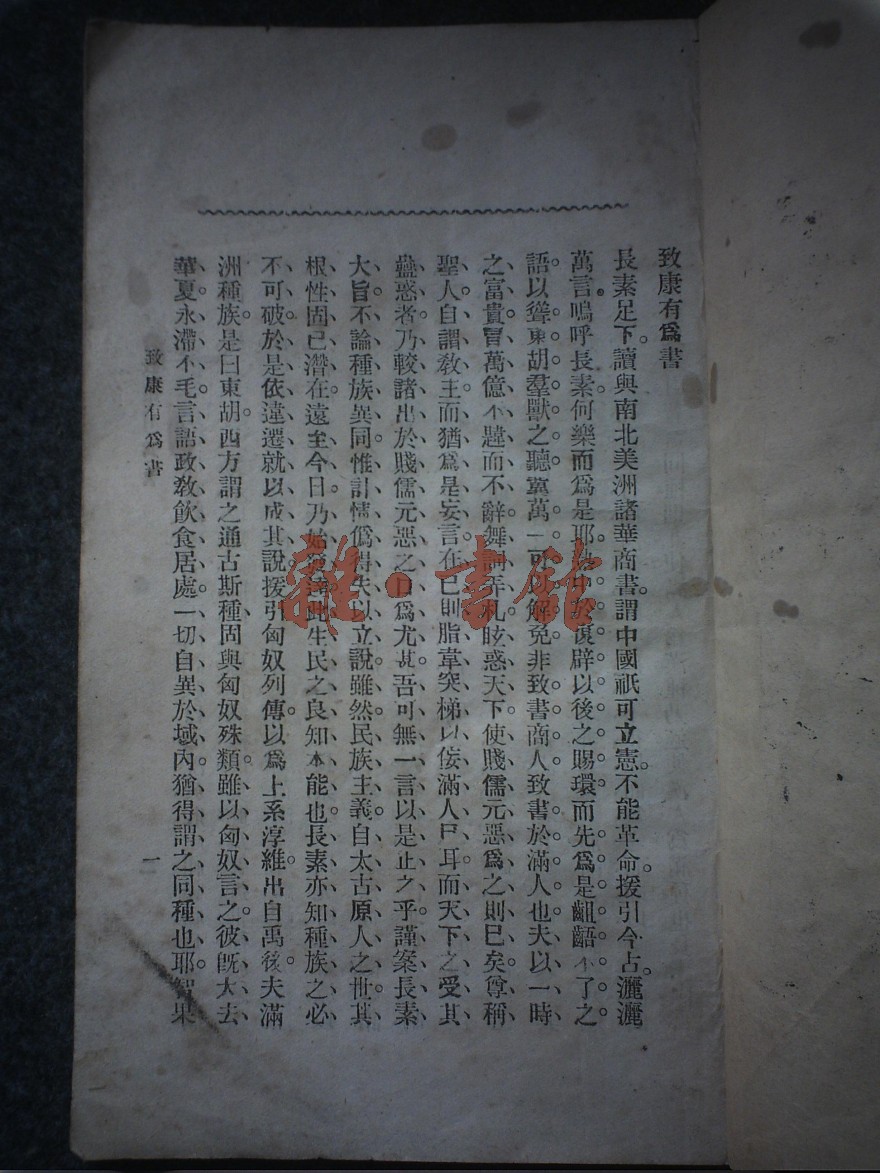 致康有爲書
長素足下。讀與南北美洲諸華商書。謂中國祇可立憲。不能革命。援引今古。灑灑
萬言。嗚呼長素。何樂而爲是耶。熱中於復辟以後之賜環。而先爲是齟齬不了之
語。以聳東胡羣獸之聽。冀萬一可以解免。非致書商人。致書於滿人也。夫以一時
之富貴、冒萬億不韙而不辭、舞詞弄札、眩惑天下、使賤儒元惡爲之則已矣、尊稱
聖人、自謂教主、而猶爲是妄言、在己則脂韋突梯以佞滿人已耳、而天下之受其
蠱惑者、乃較諸出於賤儒元惡之口爲尤甚。吾可無一言以是正之乎。謹案長素
大旨、不論種族異同、惟計情僞得失以立說。雖然、民族主義、自太古原人之世、其
根性固已潛在、遠至今日、乃始發達、此生民之良知本能也。長素亦知種族之必
不可破、於是依違遷就以成其說、援引匈奴列傳。以爲上系淳維。出自禹後。夫滿
洲種族、是曰東胡。西方謂之通古斯種、固與匈奴殊類。雖以匈奴言之、彼既大去
華夏、永滯不毛、言語政教飲食居處、一切自異於域內、猶得謂之同種也耶。智果
致康有爲書
一
雜·書館